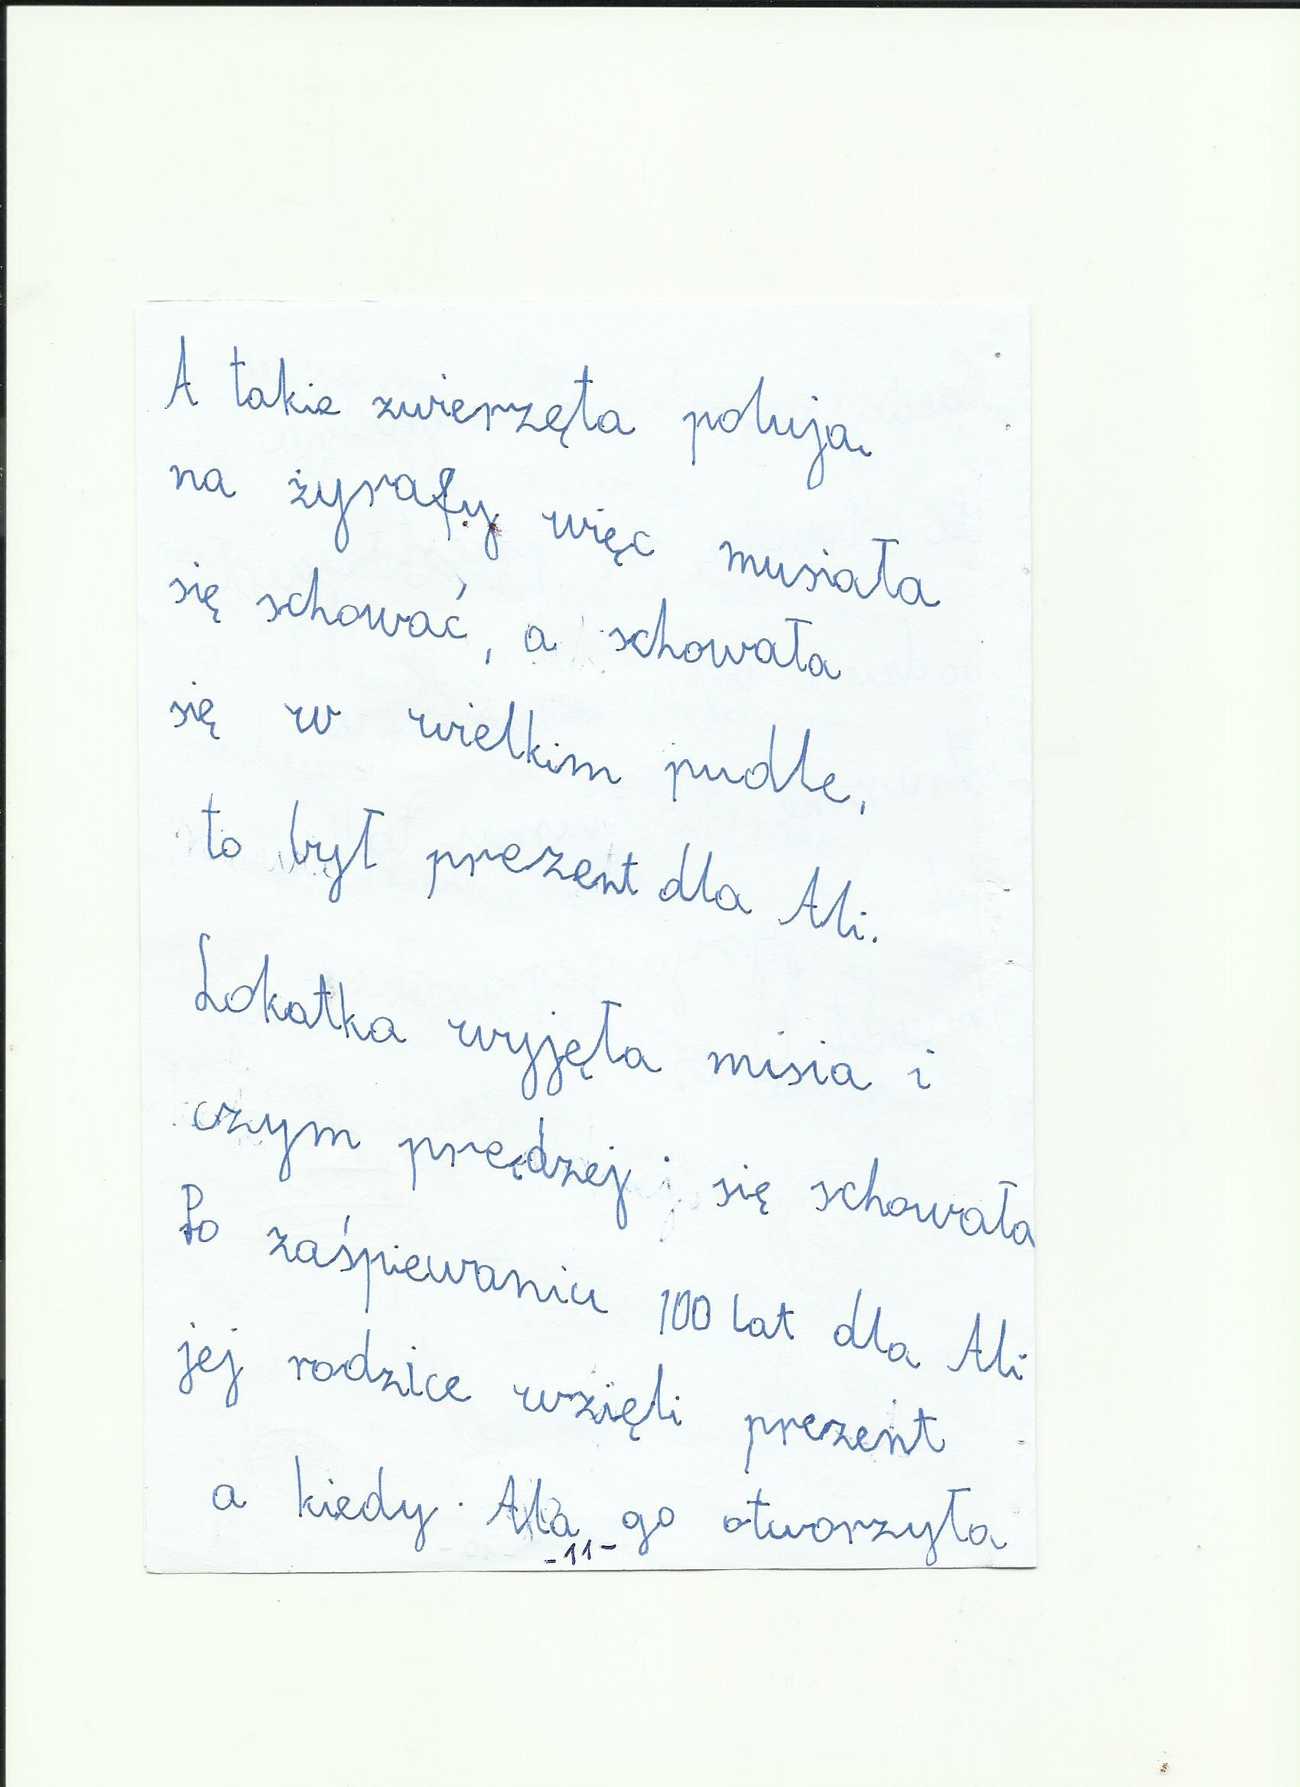 A takie zwierzęta polują
na żyrafy więc musiała
się schować, a schowała
się w wielkim pudle,
to był prezent dla Ali.
Lokatka wyjęła misia i
czym prędzej się schowała
Po zaśpiewaniu 100 lat dla Ali
jej rodzice wzięli prezent
a kiedy Ala go otworzyła
-11-